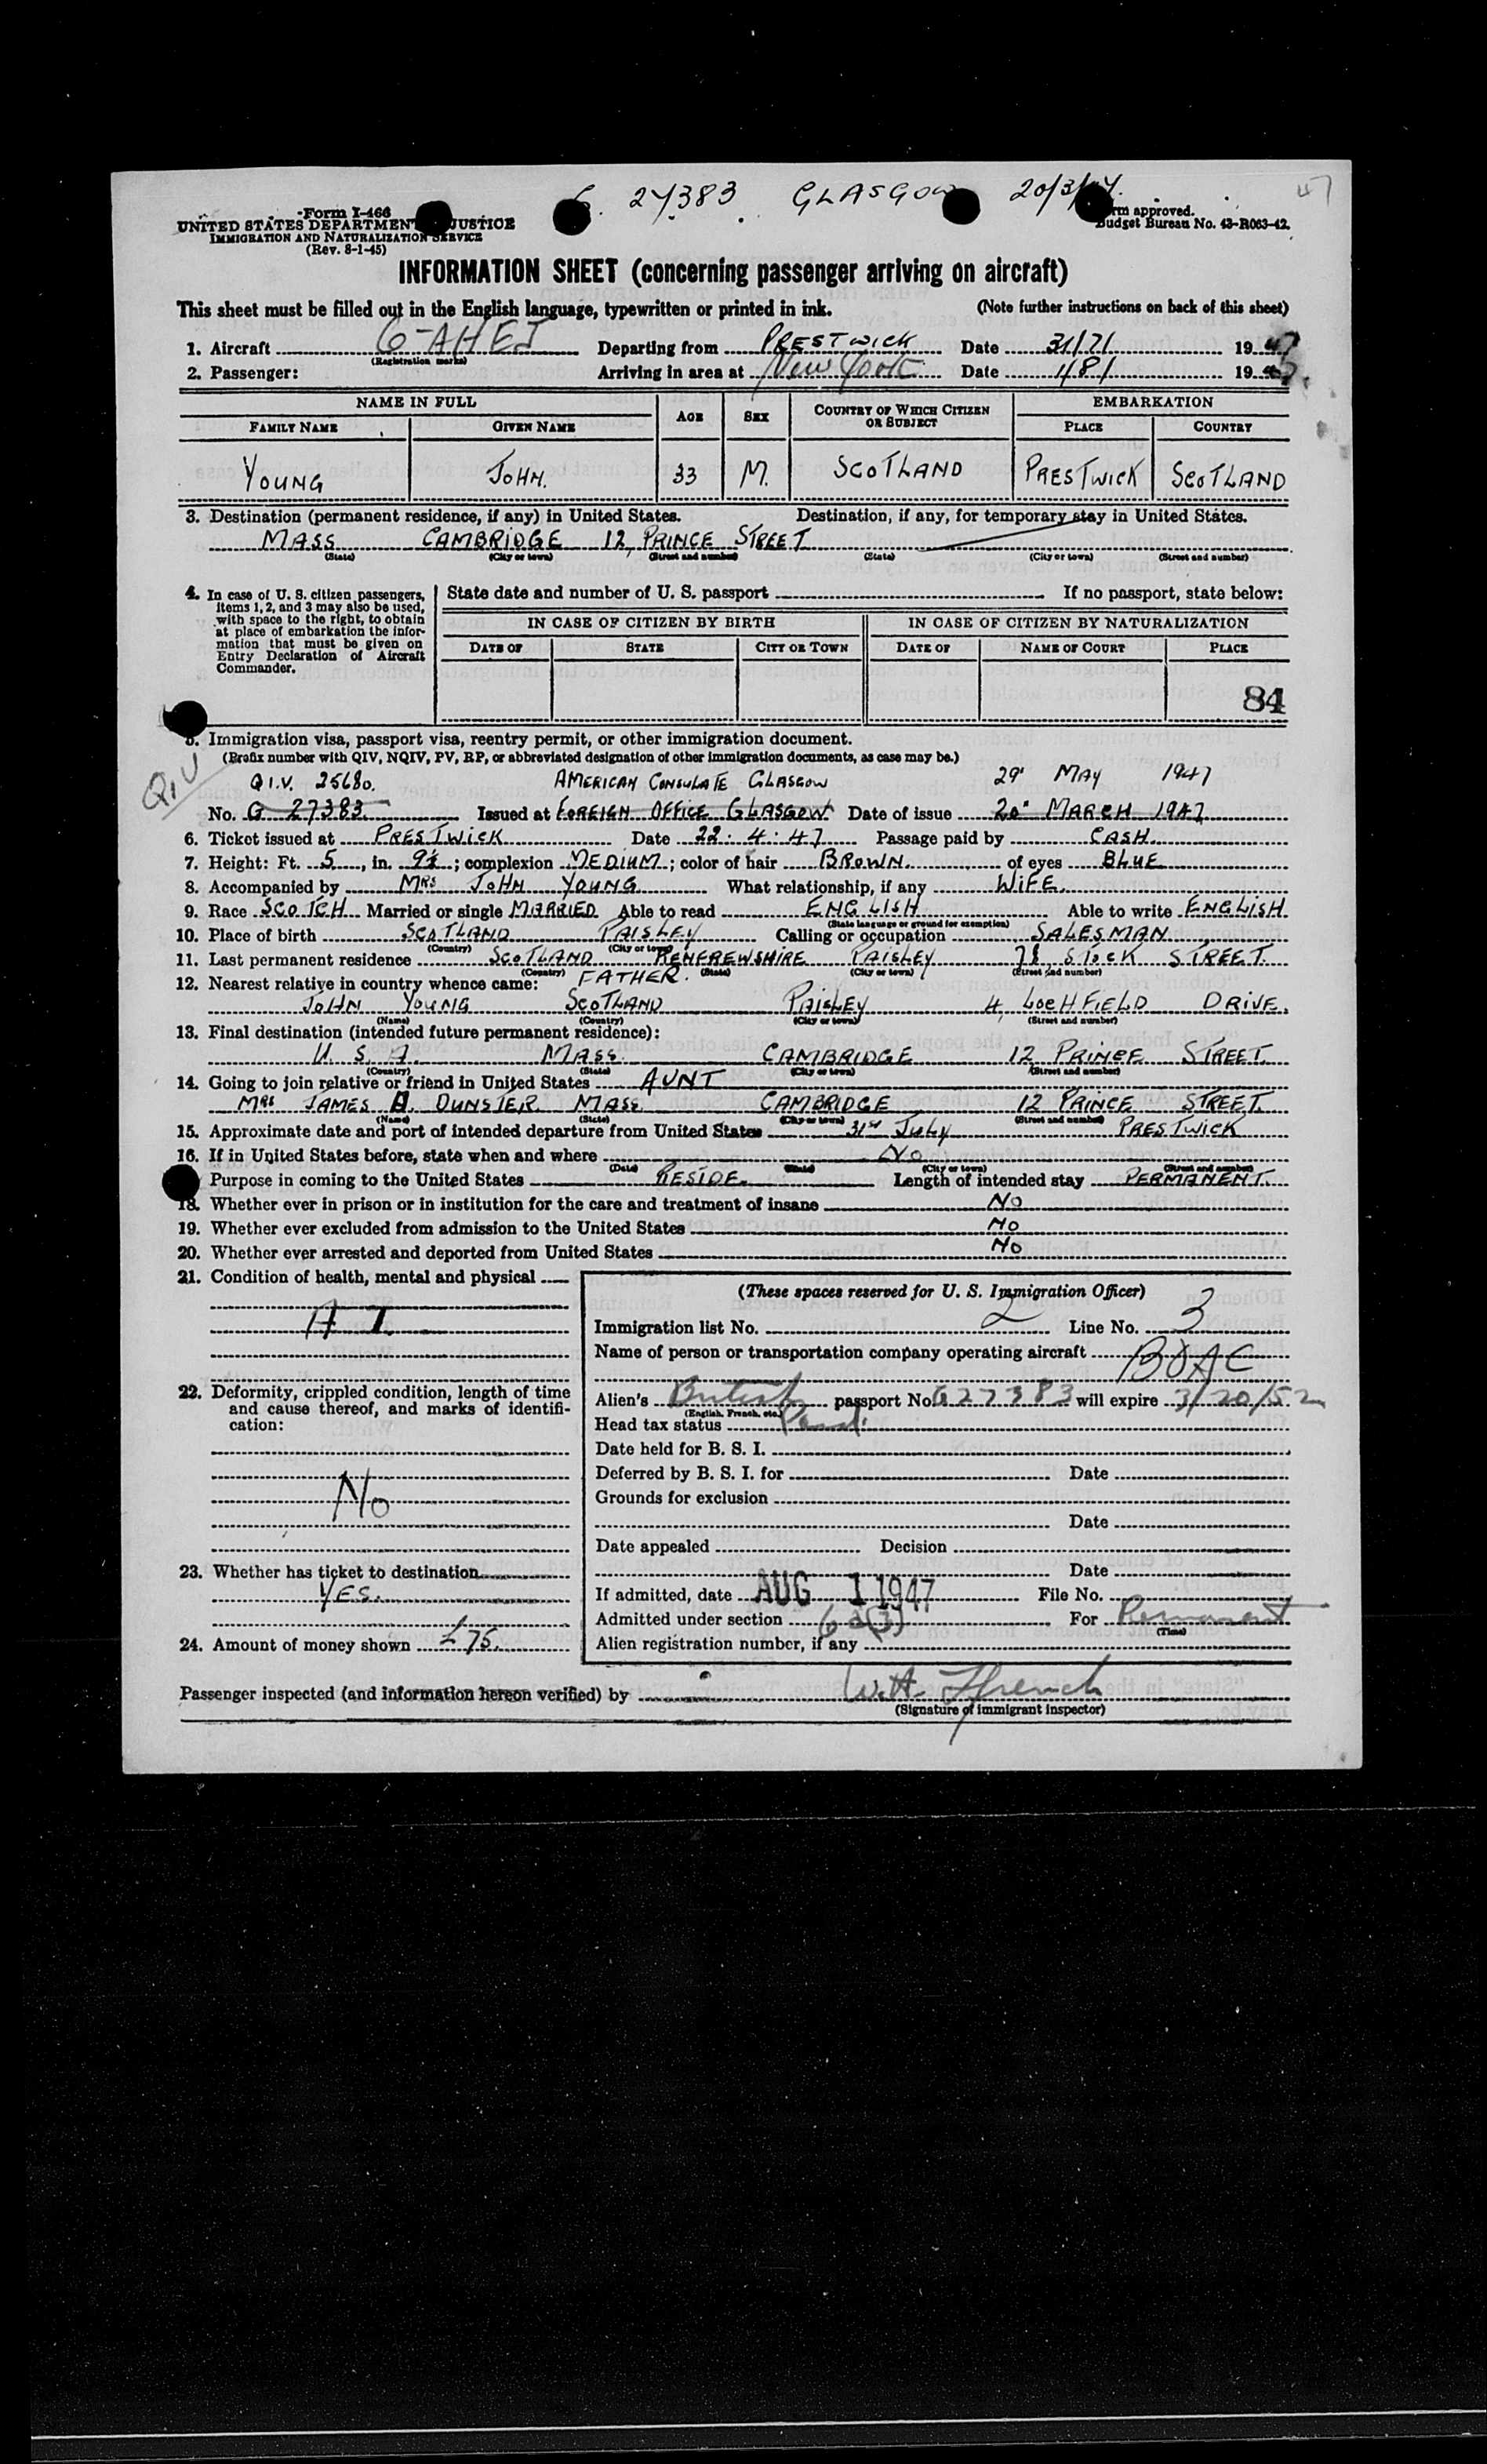 27383 GLASGOW 20/3/47. 47
Form I-466
UNITED STATES DEPARTMENT JUSTICE
IMMIGRATION AND NATURALIZATION SERVICE
(Rev. 8-1-45)
approved.
Budget Bureau No. 43-R063-42.
INFORMATION SHEET (concerning passenger arriving on aircraft)
This sheet must be filled out in the English language, typewritten or printed in ink. (Note further instructions on back of this sheet)
1. Aircraft G-AHEJ Departing from PRESTWICK Date 31/7/ 1947
(Registration marks)
2. Passenger: Arriving in area at New York Date 1/8/ 1947
NAME IN FULL AGE SEX COUNTRY OF WHICH CITIZEN OR SUBJECT EMBARKATION
FAMILY NAME GIVEN NAME PLACE COUNTRY
YOUNG JOHN. 33 M. SCOTLAND PRESTWICK SCOTLAND
3. Destination (permanent residence, if any) in United States. Destination, if any, for temporary stay in United States.
MASS CAMBRIDGE 12, PRINCE STREET
(State) (City or town) (Street and number) (State) (City or town) (Street and number)
4. In case of U. S. citizen passengers, items 1, 2, and 3 may also be used, with space to the right, to obtain at place of embarkation the information that must be given on Entry Declaration of Aircraft Commander.
State date and number of U. S. passport If no passport, state below:
IN CASE OF CITIZEN BY BIRTH IN CASE OF CITIZEN BY NATURALIZATION
DATE OF STATE CITY OR TOWN DATE OF NAME OF COURT PLACE
84
5. Immigration visa, passport visa, reentry permit, or other immigration document.
(Prefix number with QIV, NQIV, PV, RP, or abbreviated designation of other immigration documents, as case may be.)
QIV
Q.I.V. 25680. AMERICAN CONSULATE GLASGOW 29 MAY 1947
No. G 27383 Issued at FOREIGN OFFICE GLASGOW Date of issue 20 MARCH 1947
6. Ticket issued at PRESTWICK Date 22.4.47 Passage paid by CASH.
7. Height: Ft. 5, in. 9½; complexion MEDIUM; color of hair BROWN. of eyes BLUE
8. Accompanied by MRS JOHN YOUNG What relationship, if any WIFE.
9. Race SCOTCH Married or single MARRIED Able to read ENGLISH Able to write ENGLISH
(State language or ground for exemption)
10. Place of birth SCOTLAND PAISLEY Calling or occupation SALESMAN
(Country) (City or town)
11. Last permanent residence SCOTLAND RENFREWSHIRE PAISLEY STOCK STREET.
(Country) (State) (City or town) (Street and number)
12. Nearest relative in country whence came: FATHER.
JOHN YOUNG SCOTLAND PAISLEY 4, LOCHFIELD DRIVE.
(Name) (Country) (City or town) (Street and number)
13. Final destination (intended future permanent residence):
U. S. A. MASS. CAMBRIDGE 12 PRINCE STREET.
(Country) (State) (City or town) (Street and number)
14. Going to join relative or friend in United States AUNT
MRS JAMES A. DUNSTER. MASS. CAMBRIDGE 12 PRINCE STREET.
(Name) (State) (City or town) (Street and number)
15. Approximate date and port of intended departure from United States 31st July PRESTWICK
16. If in United States before, state when and where NO
(Date) (State) (City or town) (Street and number)
Purpose in coming to the United States RESIDE. Length of intended stay PERMANENT.
18. Whether ever in prison or in institution for the care and treatment of insane NO
19. Whether ever excluded from admission to the United States NO
20. Whether ever arrested and deported from United States NO
21. Condition of health, mental and physical
A I
22. Deformity, crippled condition, length of time and cause thereof, and marks of identification:
No
23. Whether has ticket to destination
YES.
24. Amount of money shown £75.
(These spaces reserved for U. S. Immigration Officer)
Immigration list No. 2 Line No. 3
Name of person or transportation company operating aircraft BOAC
Alien's British passport No. G27383 will expire 3/20/52
(English, French, etc.)
Head tax status Paid
Date held for B. S. I.
Deferred by B. S. I. for Date
Grounds for exclusion
Date
Date appealed Decision
Date
If admitted, date AUG 1 1947 File No.
Admitted under section 6a(3) For Permanent
(Time)
Alien registration number, if any
Passenger inspected (and information hereon verified) by W.A. Ffrench
(Signature of immigrant inspector)